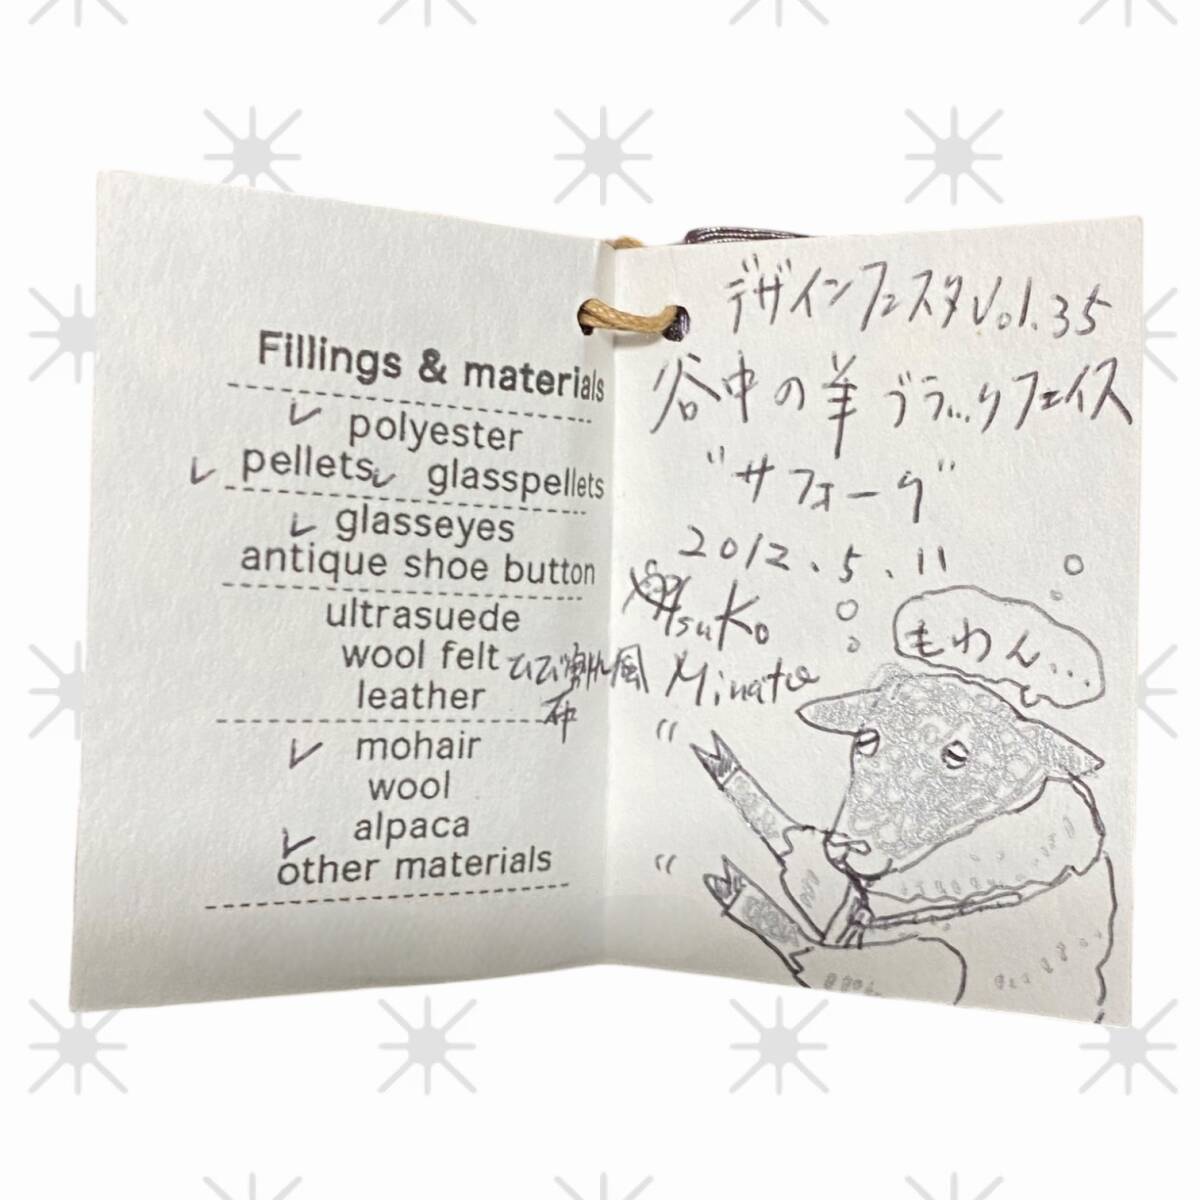 Fillings & materials
✓ polyester
✓ pellets ✓ glasspellets
✓ glasseyes
antique shoe button
ultrasuede
wool felt ひび割れ風
leather 布
✓ mohair
wool
alpaca
✓ other materials
デザインフェスタVol.35
谷中の羊 ブラックフェイス
"サフォーク"
2012.5.11
Minato
もわん...